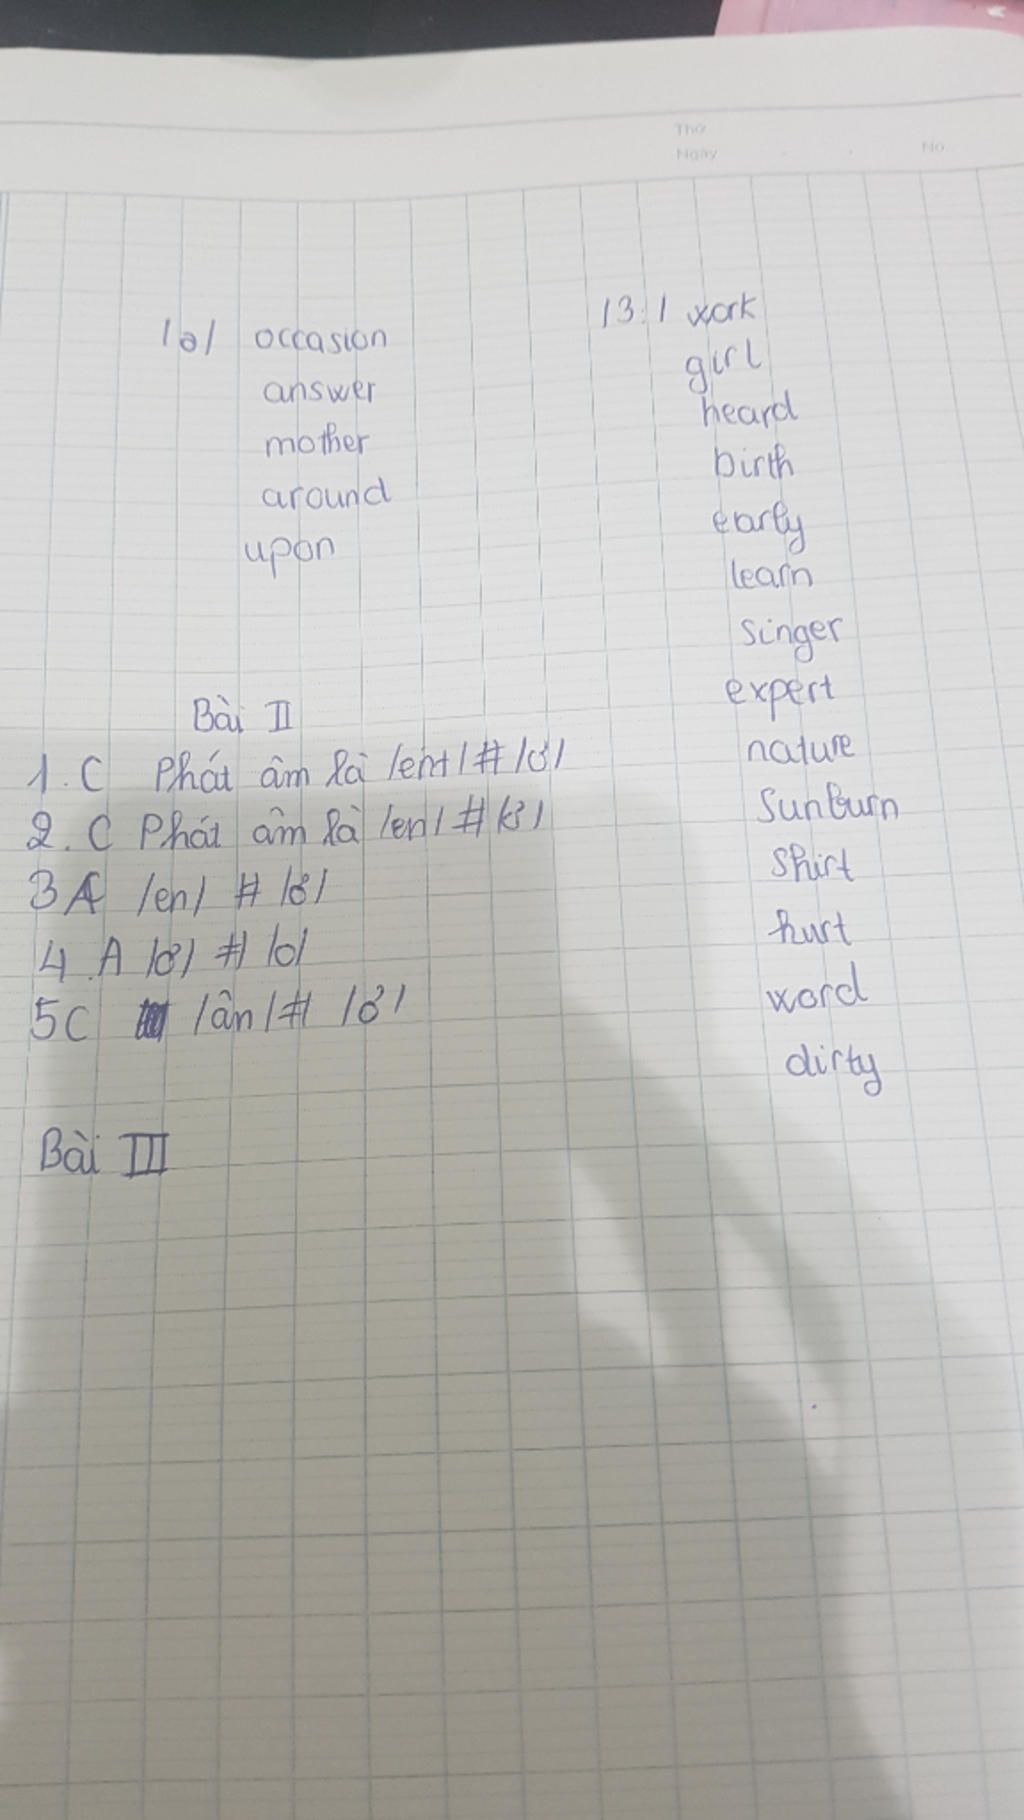 Thứ
Ngày
No.
/ə/ occasion
answer
mother
around
upon
/3:/ work
girl
heard
birth
early
learn
singer
expert
nature
Sunburn
shirt
hurt
word
dirty
Bài II
1. C Phát âm là /ent/ # /ơ/
2. C Phát âm là /en/ #
3 A /en/ # /ơ/
4. A /ơ/ # /o/
5C /ân/ # /ơ/
Bài III